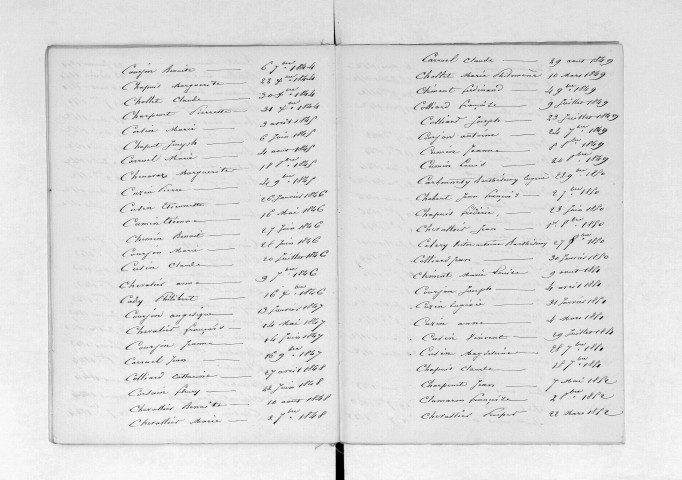 Courjon Benoite — 6 7bre 1844
Chapuis Marguerite — 22 Xbre 1844
Chollet Claude — 30 Xbre 1844
Charpenet Pierrette — 31 Xbre 1844
Cusin Marie — 3 avril 1845
Chaput Joseph — 6 Juin 1845
Carruel Marie — 4 aout 1845
Chenavas Marguerite — 11 8bre 1845
Cuzin Pierre — 4 9bre 1845
Cusin Etiennette — 26 Janvier 1846
Cumin Etienne — 16 Mai 1846
Chemin Benoit — 27 Juin 1846
Courjon Marie — 28 Juin 1846
Cusin Claude — 20 Juillet 1846
Chevalier anne — 9 7bre 1846
Coly Philibert — 16 Xbre 1846
Courjon angélique — 13 Janvier 1847
Chevalier françois — 14 Mai 1847
Courjon Jeanne — 14 Juin 1847
Carruel Jean — 16 9bre 1847
Colliard Catherine — 27 avril 1848
Fleury — 24 Juin 1848
Chevallier Benoite — 10 aout 1848
Chevallier Marie — 2 7bre 1848
Carruel Claude — 29 aout 1849
Chollet Marie Philomène 10 Mars 1849
Clément ferdinand — 4 9bre 1849
Colliard françoise — 9 Juillet 1849
Colliard Joseph — 23 Juillet 1849
Courjon antoine — 24 7bre 1849
Cumin Jeanne — 8 8bre 1849
Cumin Louis — 20 8bre 1849
Barthélemy 23 9bre 1850
Chabert Jean François — 27 1850
Chapuis frédéric — 23 Juin 1850
Chevallier Jean — 1er 8bre 1850
Barthélemy 27 8bre 1850
Colliard Jean — 30 Janvier 1850
Clément Marie Louise — 9 aout 1850
Courjon Joseph — 4 avril 1850
Cuzin — 31 Janvier 1850
Cuzin anne — 4 Mars 1850
Cusin Vincent — 29 Juillet 1850
Cusin Magdeleine — 28 7bre 1850
Chapuis Claude — 15 7bre 1850
Charpenet Jean — 7 Mai 1852
Françoise — 2 8bre 1852
Chevallier — 22 Mars 1852